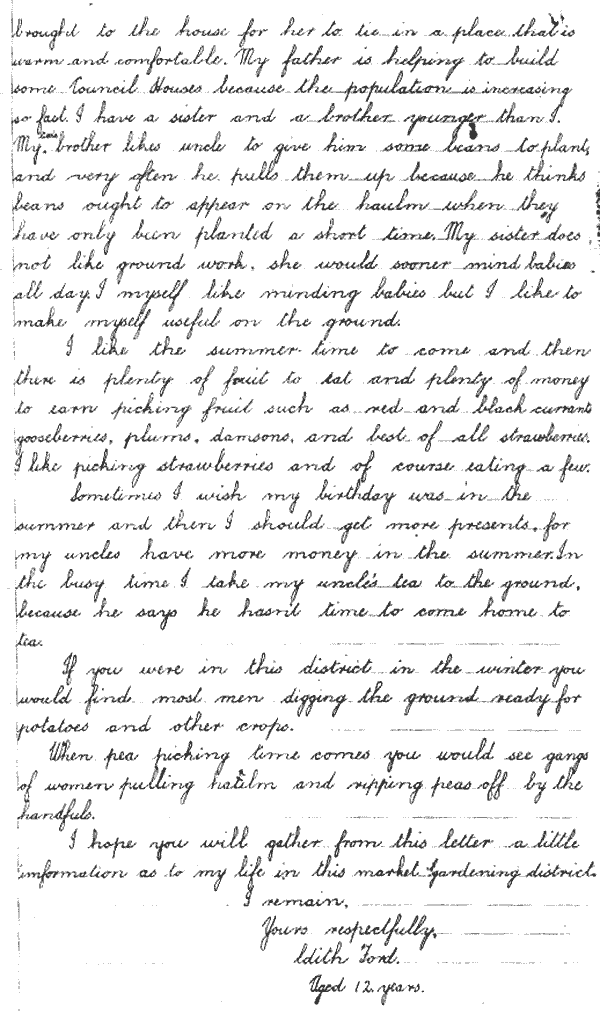 brought to the house for her to tie in a place that is
warm and comfortable. My father is helping to build
some Council Houses because the population is increasing
so fast. I have a sister and a brother younger than I.
My brother likes uncle to give him some beans to plant,
and very often he pulls them up because he thinks
beans ought to appear on the haulm when they
have only been planted a short time. My sister does
not like ground work, she would sooner mind babies
all day. I myself like minding babies but I like to
make myself useful on the ground.
I like the summer time to come and then
there is plenty of fruit to eat and plenty of money
to earn picking fruit such as red and black currants
gooseberries, plums, damsons, and best of all strawberries.
I like picking strawberries and of course eating a few.
Sometimes I wish my birthday was in the
summer and then I should get more presents, for
my uncles have more money in the summer. In
the busy time I take my uncle's tea to the ground,
because he says he hasn't time to come home to
tea.
If you were in this district in the winter you
would find most men digging the ground ready for
potatoes and other crops.
When pea picking time comes you would see gangs
of women pulling haulm and ripping peas off by the
handfuls.
I hope you will gather from this letter a little
information as to my life in this market gardening district.
I remain,
Yours respectfully,
Edith Ford.
Aged 12 years.